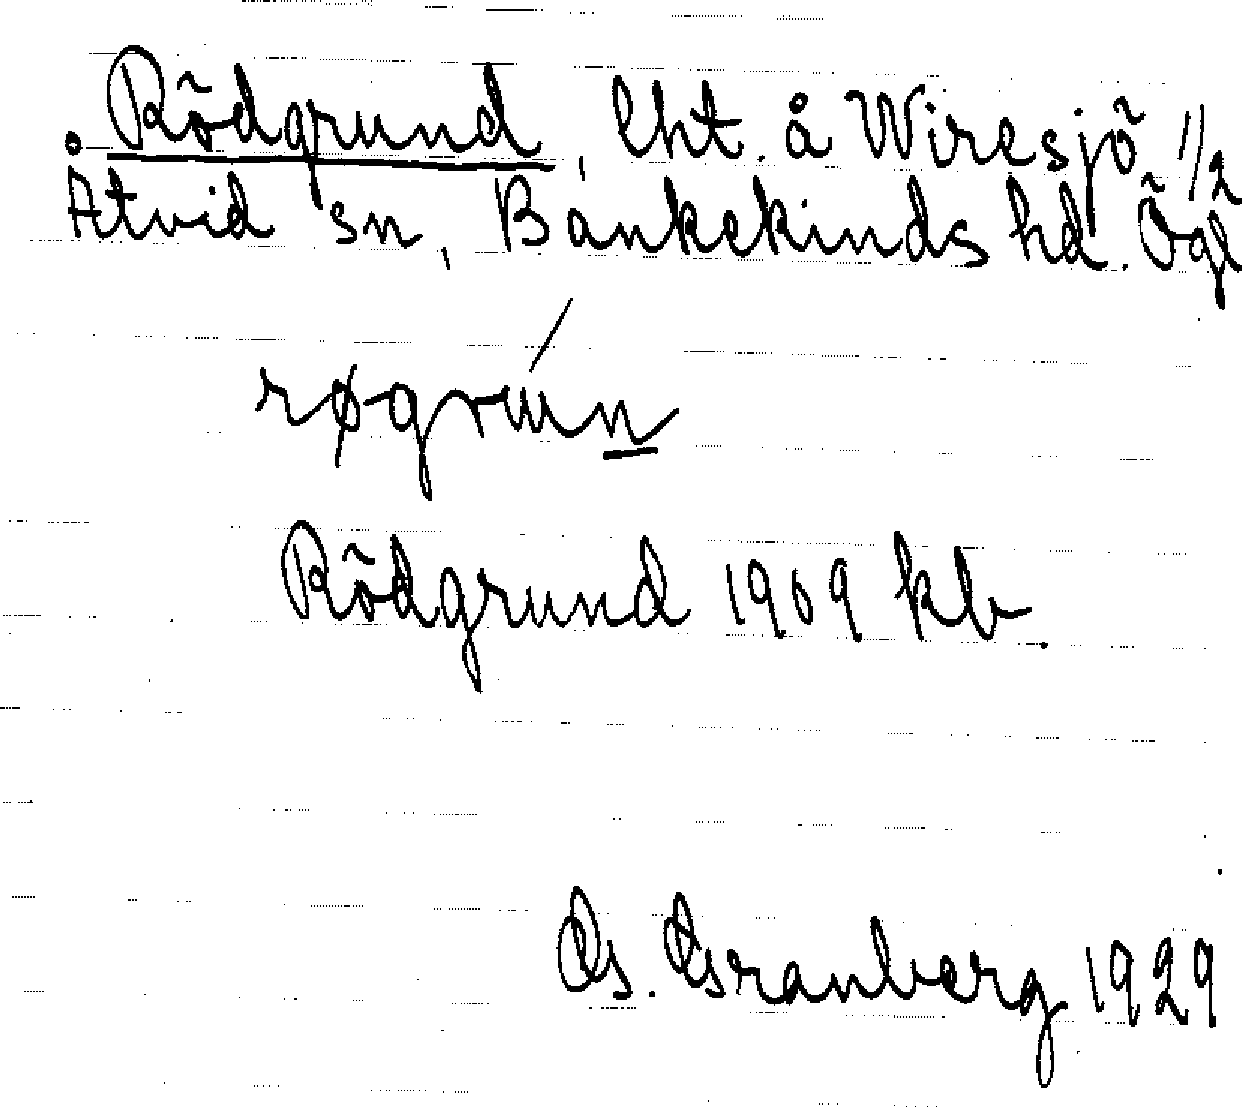 Rödgrund, lht. å Wiresjö 1/2
Åtvid sn, Bankekinds hd. Ögl
røgrun
Rödgrund 1909 kb.
G. Granberg 1929